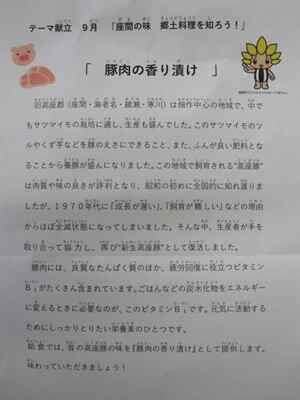 テーマ献立　９月　「座間の味　郷土料理を知ろう！」
「　豚肉の香り漬け　」
旧高座郡（座間・海老名・綾瀬・寒川）は畑作中心の地域で、中で
もサツマイモの栽培に適し、生産も盛んでした。このサツマイモのツ
ルやくず芋などを豚のえさにできること、また、ふんが良い肥料とな
ることから養豚が盛んになりました。この地域で飼育される“高座豚”
は肉質や味の良さが評判となり、昭和の初めに全国的に知れ渡りま
したが、１９７０年代に「成長が遅い」、「飼育が難しい」などの理由
からほぼ全滅状態になってしまいました。そんな中、生産者が手を
取り合って協力し、再び“新生高座豚”として復活しました。
豚肉には、良質なたんぱく質のほか、疲労回復に役立つビタミン
B₁がたくさん含まれています。ごはんなどの炭水化物をエネルギー
に変えるときに必要なのが、このビタミンB₁です。元気に活動する
ためにしっかりとりたい栄養素のひとつです。
給食では、昔の高座豚の味を『豚肉の香り漬け』として提供します。
味わっていただきましょう！